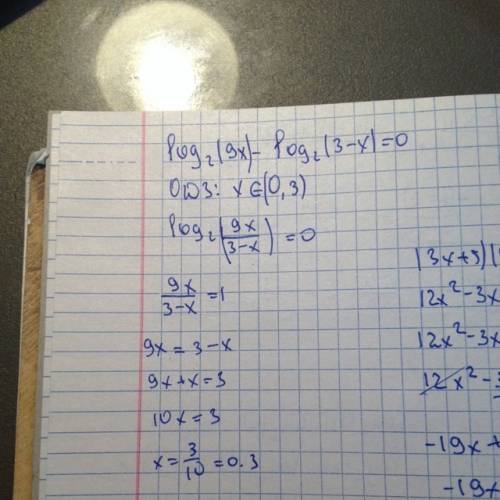 log₂(9x) - log₂(3-x) = 0
ОДЗ: x ∈ (0, 3)
log₂(9x/(3-x)) = 0
9x/(3-x) = 1
9x = 3 - x
9x + x = 3
10x = 3
x = 3/10 = 0.3
(3x+5)(
12x² - 3x
12x² - 3x
12x² - 3
-19x +
-19x